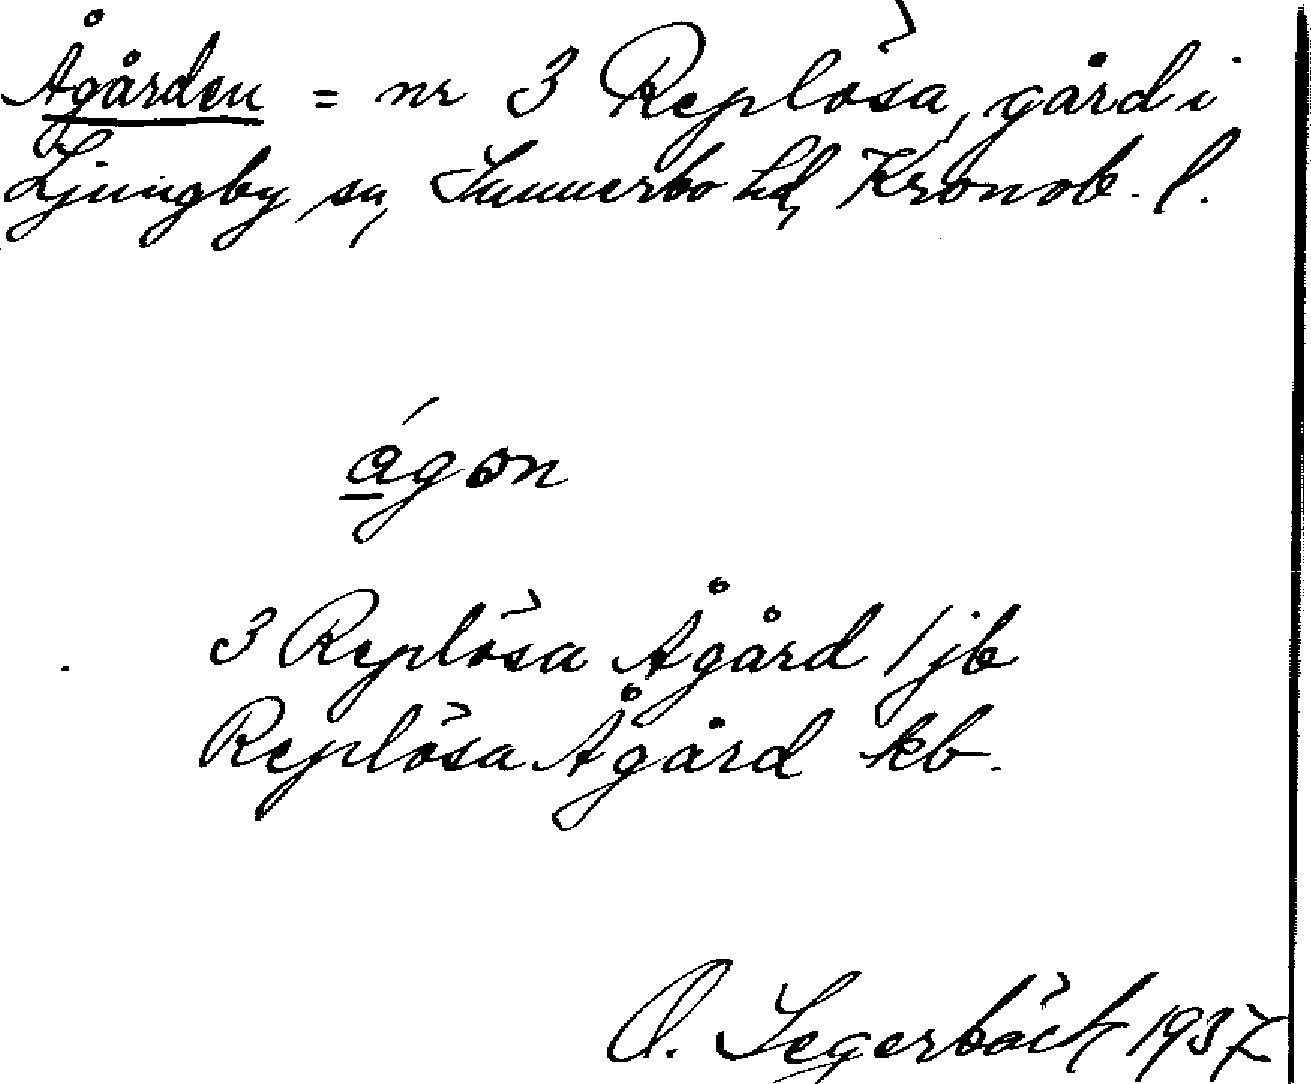 Ågården = nr 3 Replösa, gård i
Ljungby sn, Sunnerbo hd, Kronob. l.
ágon
3 Replösa Ågård / jb
Replösa Ågård kb.
O. Segerbäck 1937